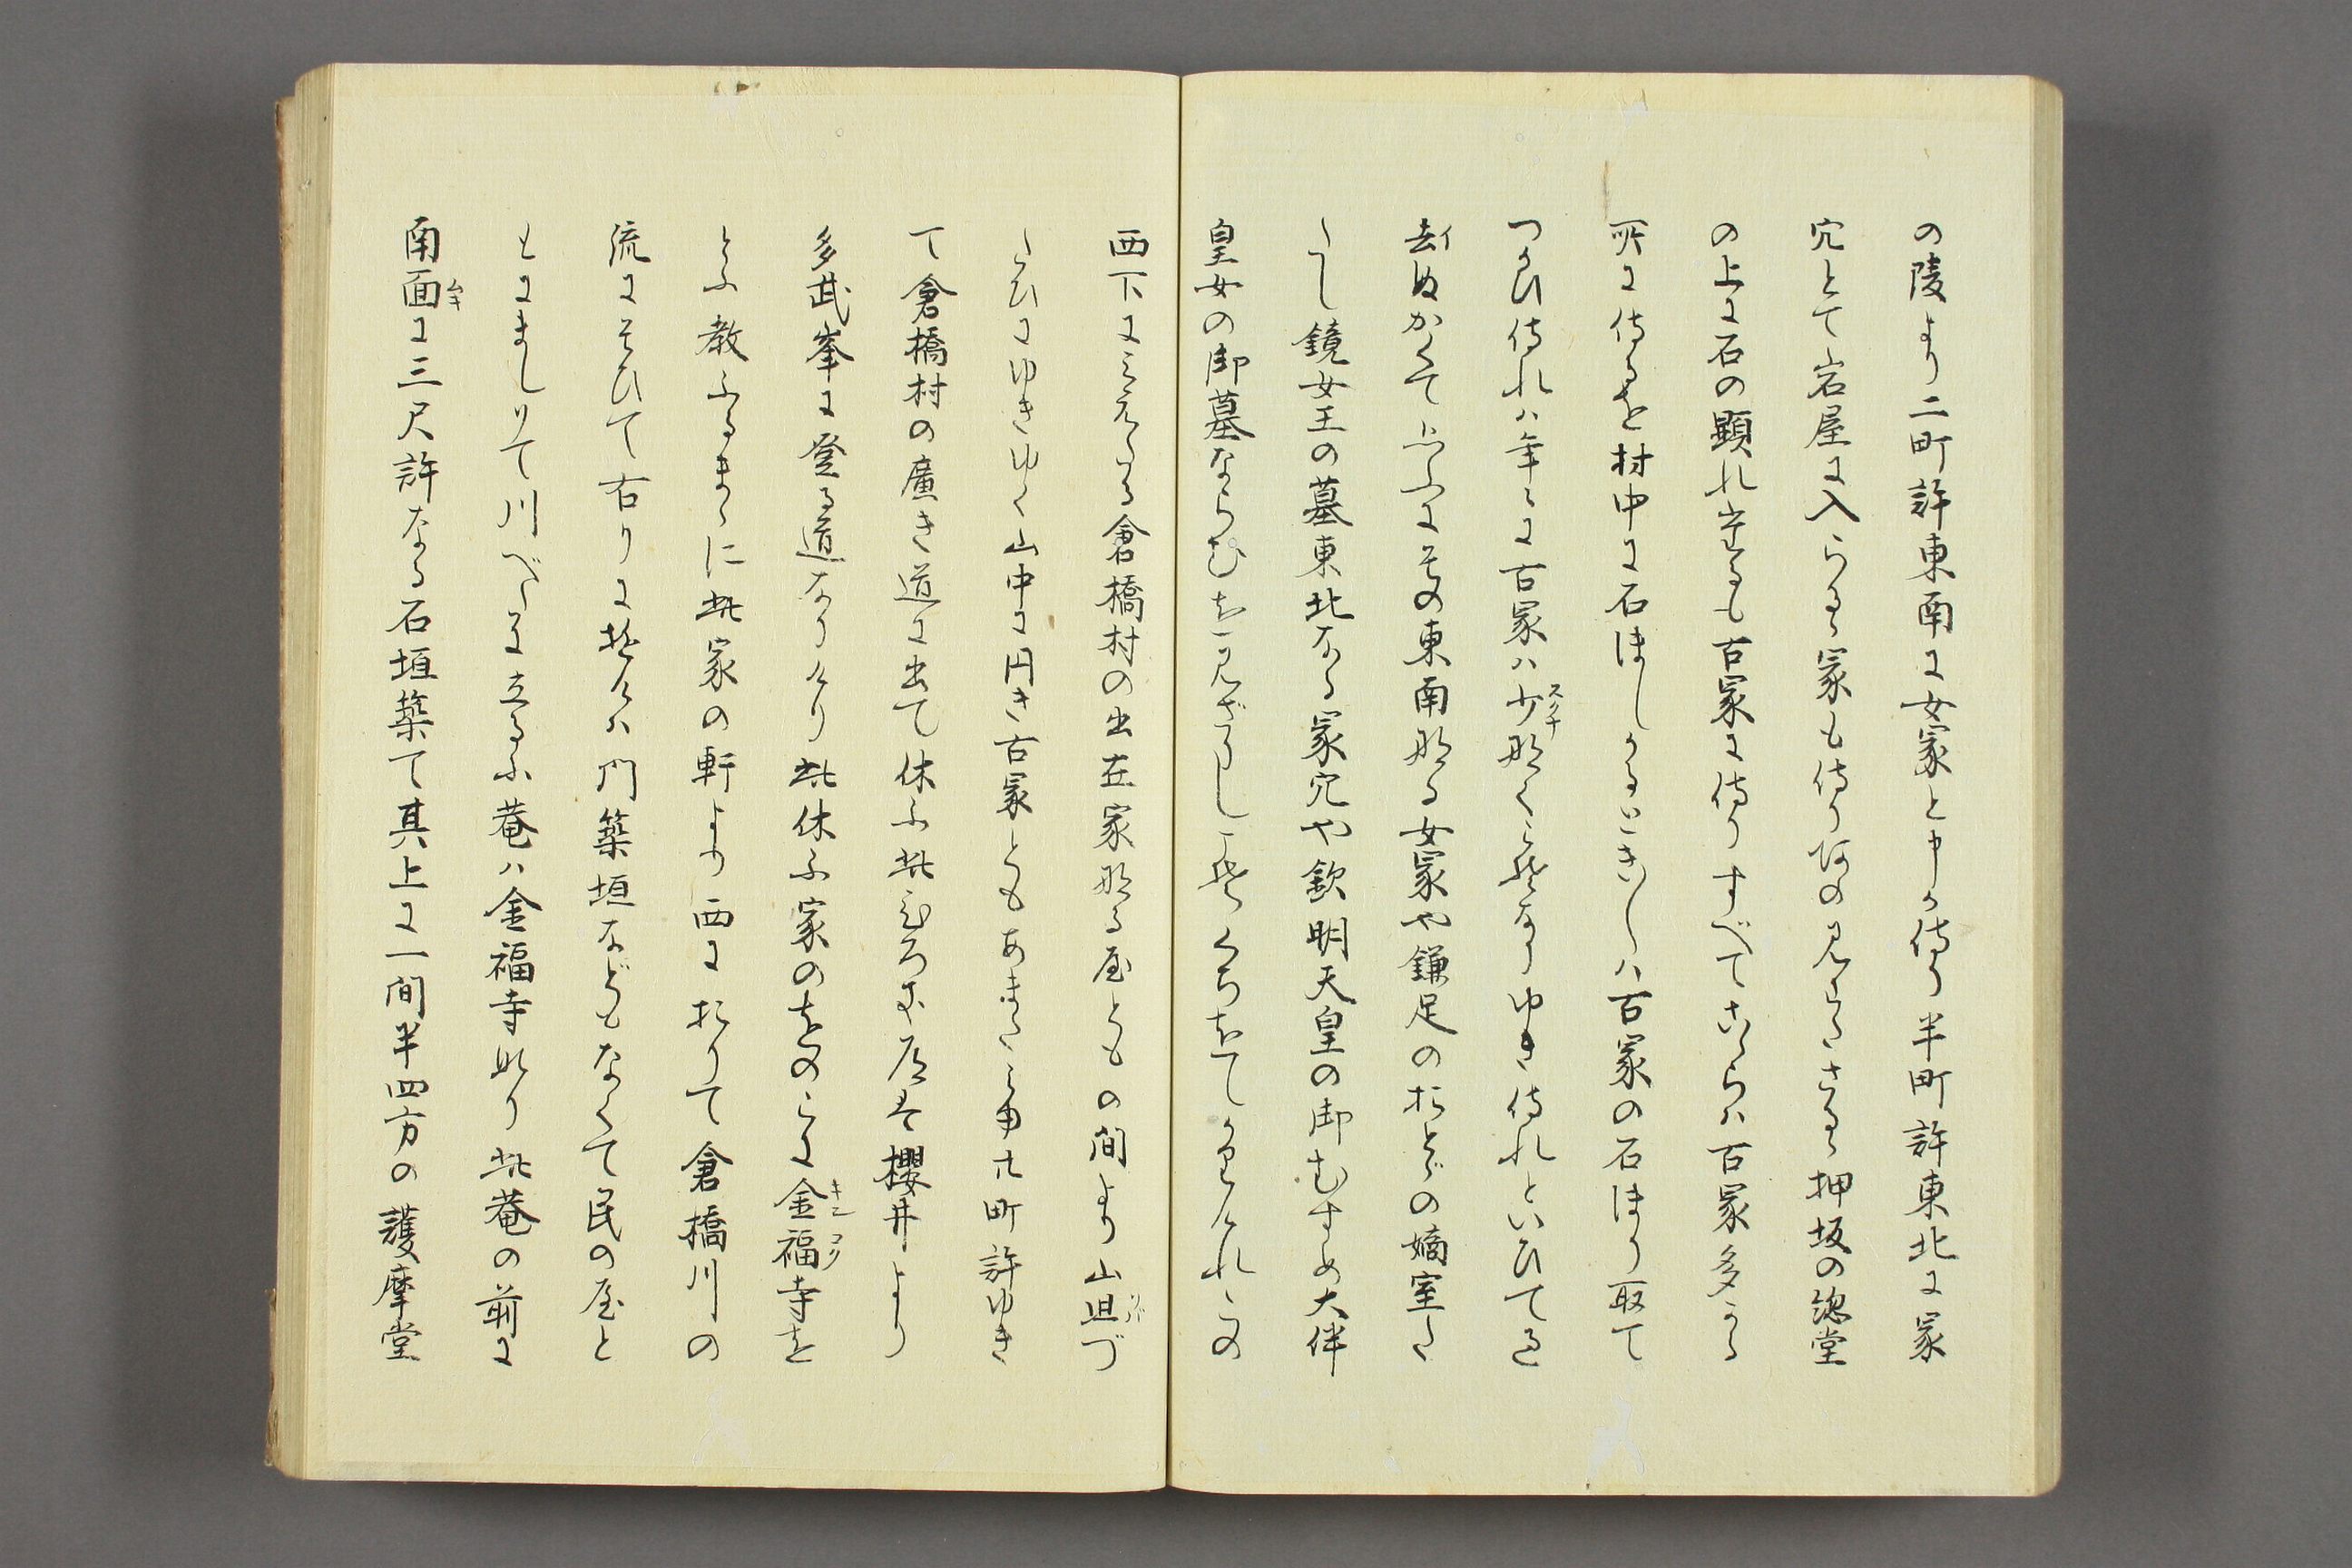 の陵より二町許東南に女冢と申か侍り半町許東北に冢
穴とて岩屋に入らるゝ冢も侍り穴の見らさるゝ押坂の惣堂
の上に石の顕れたるも古冢に侍りすべてこゝらハ古冢多かる
所に侍るを村中に石ほしかるときしハ古冢の石ほり取て
つかひ侍れハ年々に古冢ハ少那くこそなりゆき侍れといひて
去ぬかくて思ふにその東南那る女冢や鎌足のおとゞの嫡室と
し鏡女王の墓東北なる冢穴や欽明天皇の御むすめ大伴
皇女の御墓ならむを見ざりしこそくちをしかりけれこの
西下にみえたる倉橋村の出在家那る屋ともの間より山辺づ
たひにゆきゆく山中に円き古冢ともあまたみゆ廿町許ゆき
て倉橋村の廣き道に出て休ふ此ところは櫻井より
多武峯に登る道なりけり此休ふ家のをのこに金福寺を
とふ教ふるまゝに此家の軒より西におりて倉橋川の
流にそひて右りに折ハ門築垣などもなくて民の屋と
もにましりて川べたに立る小菴ハ金福寺なり此菴の前に
南面に三尺許なる石垣築て其上に一間半四方の護摩堂